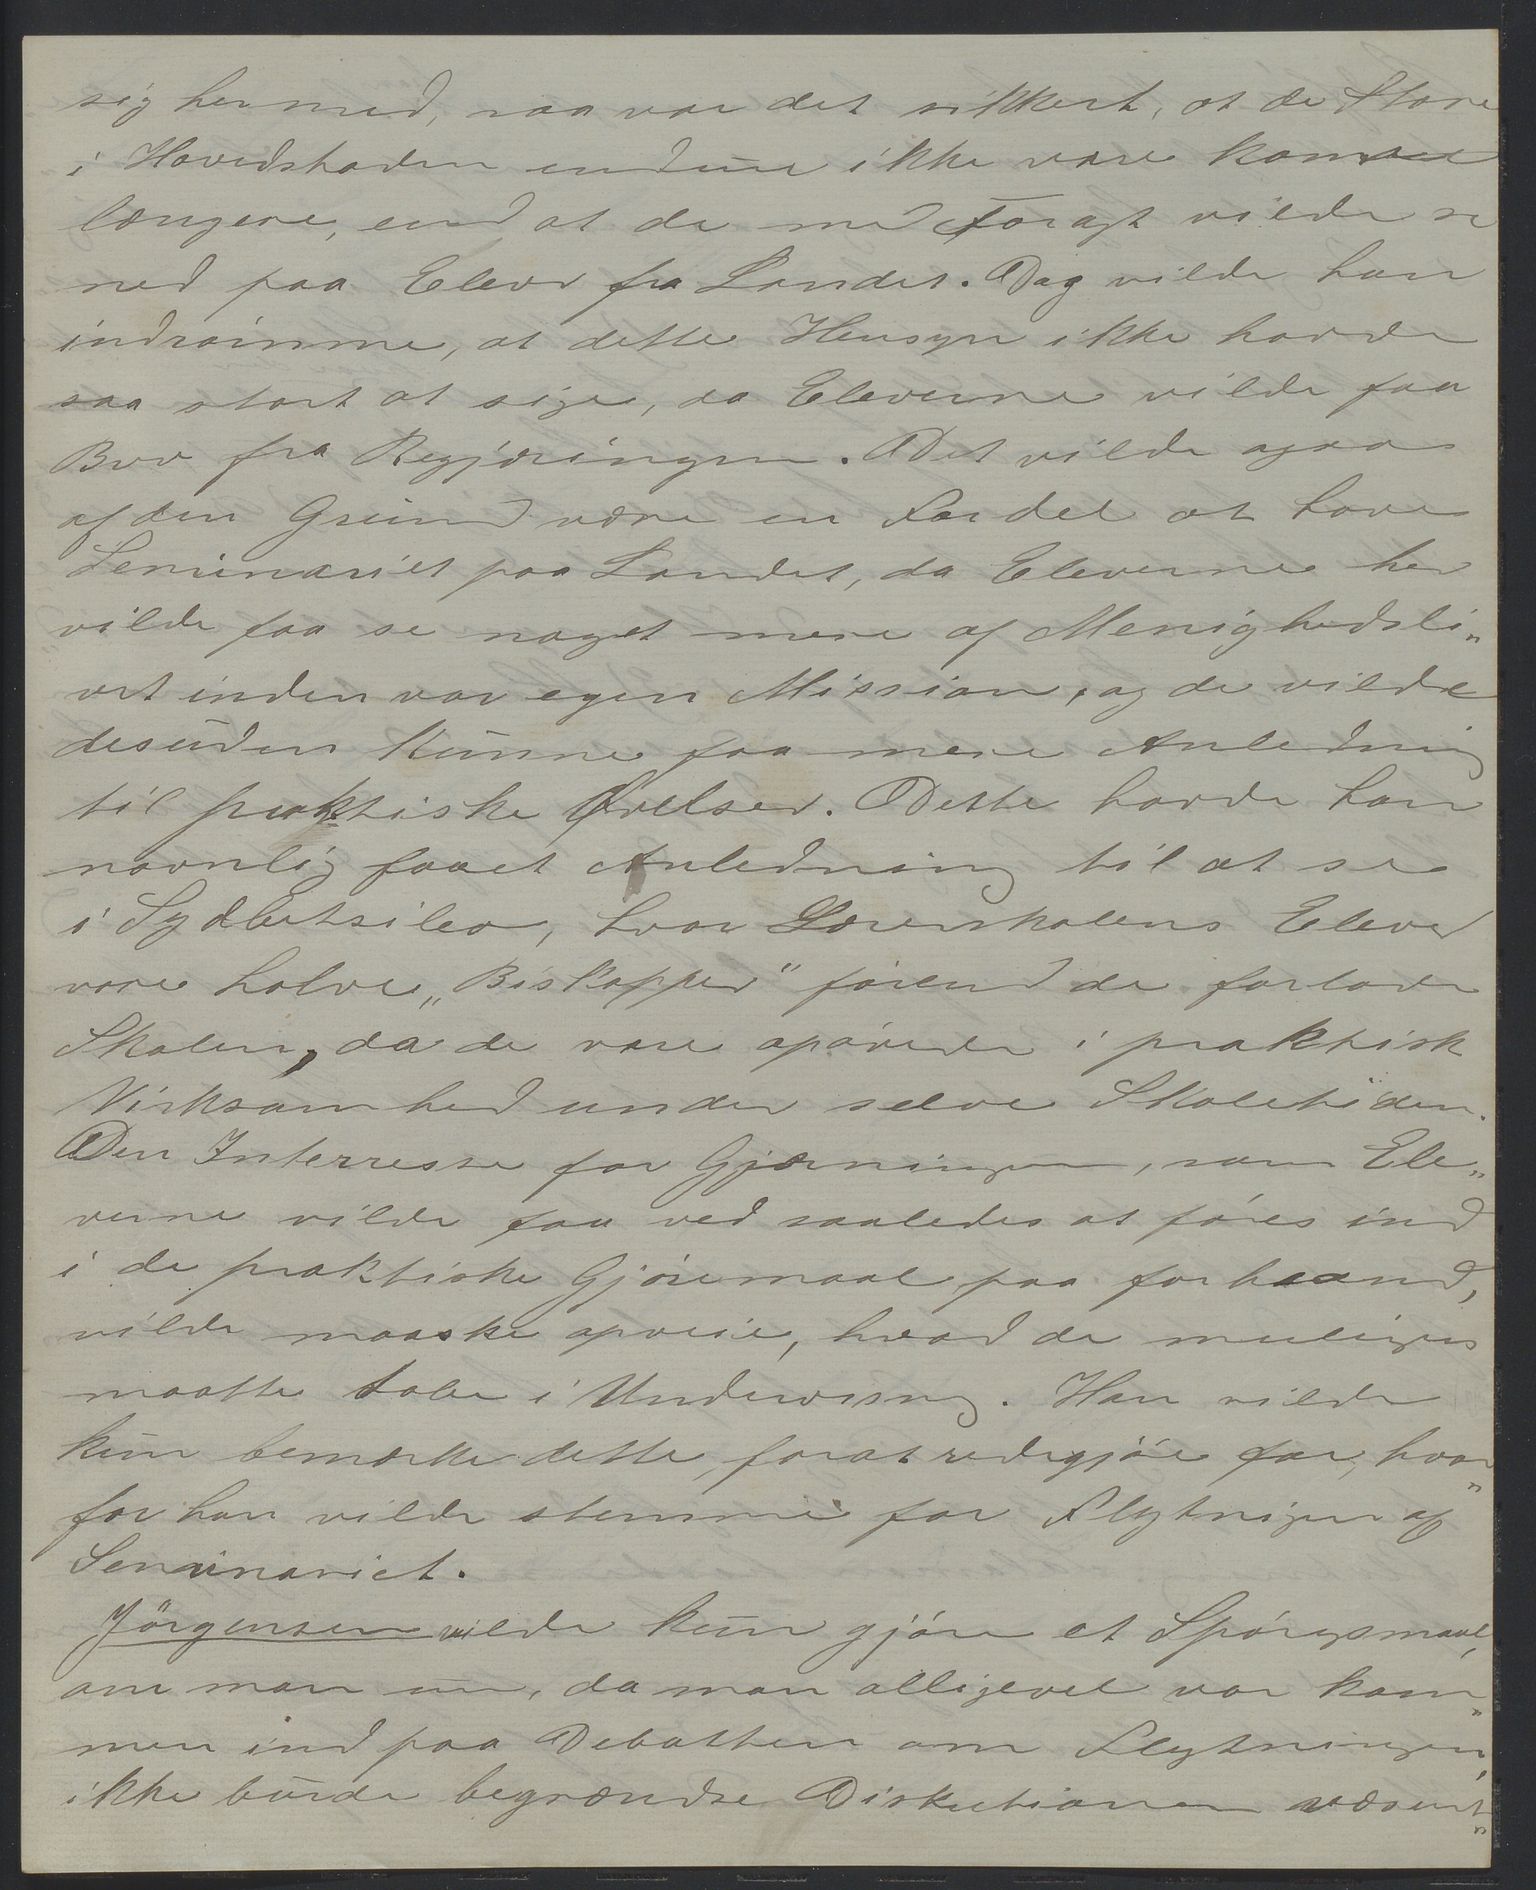 sig hermed, saa var det sikkert, at de Store
i Hovedstaden endnu ikke vare komne
længere, end at de med Foragt vilde se
ned paa Elever fra Landet. Dog vilde han
indrømme, at dette Hensyn ikke havde
saa stort at sige, da Eleverne vilde faa
Brev fra Regjæringen. Det vilde ogsaa
af den Grund være en Fordel at have
Seminariet paa Landet, da Eleverne her
vilde faa se noget mere af Menighedsli„
vet inden vor egen Mission, og de vilde
desuden kunne faa mere Anledning
til praktiske Øvelser. Dette havde han
navnlig faaet Anledning til at se
i Sydbetsileo, hvor Lærerskolens Elever
vare halve „Biskopper" førend de forlode
Skolen, da de vare opøvede i praktisk
Virksomhed under selve Skoletiden.
Den Interresse for Gjærningen, som Ele„
verne vilde faa ved saaledes at føres ind
i de praktiske Gjøremaal paa forhaand,
vilde maaske opveie, hvad de muligens
maatte tabe i Undervisning. Han vilde
kun bemærke dette, forat redegjøre for, hvor„
for han vilde stemme for Flytningen af
Seminariet.
Jörgensen vilde kun gjøre et Spørgsmaal,
om man nu, da man alligevel var kom„
men ind paa Debatten om Flytningen,
ikke burde begrændse Diskutionen væsent„